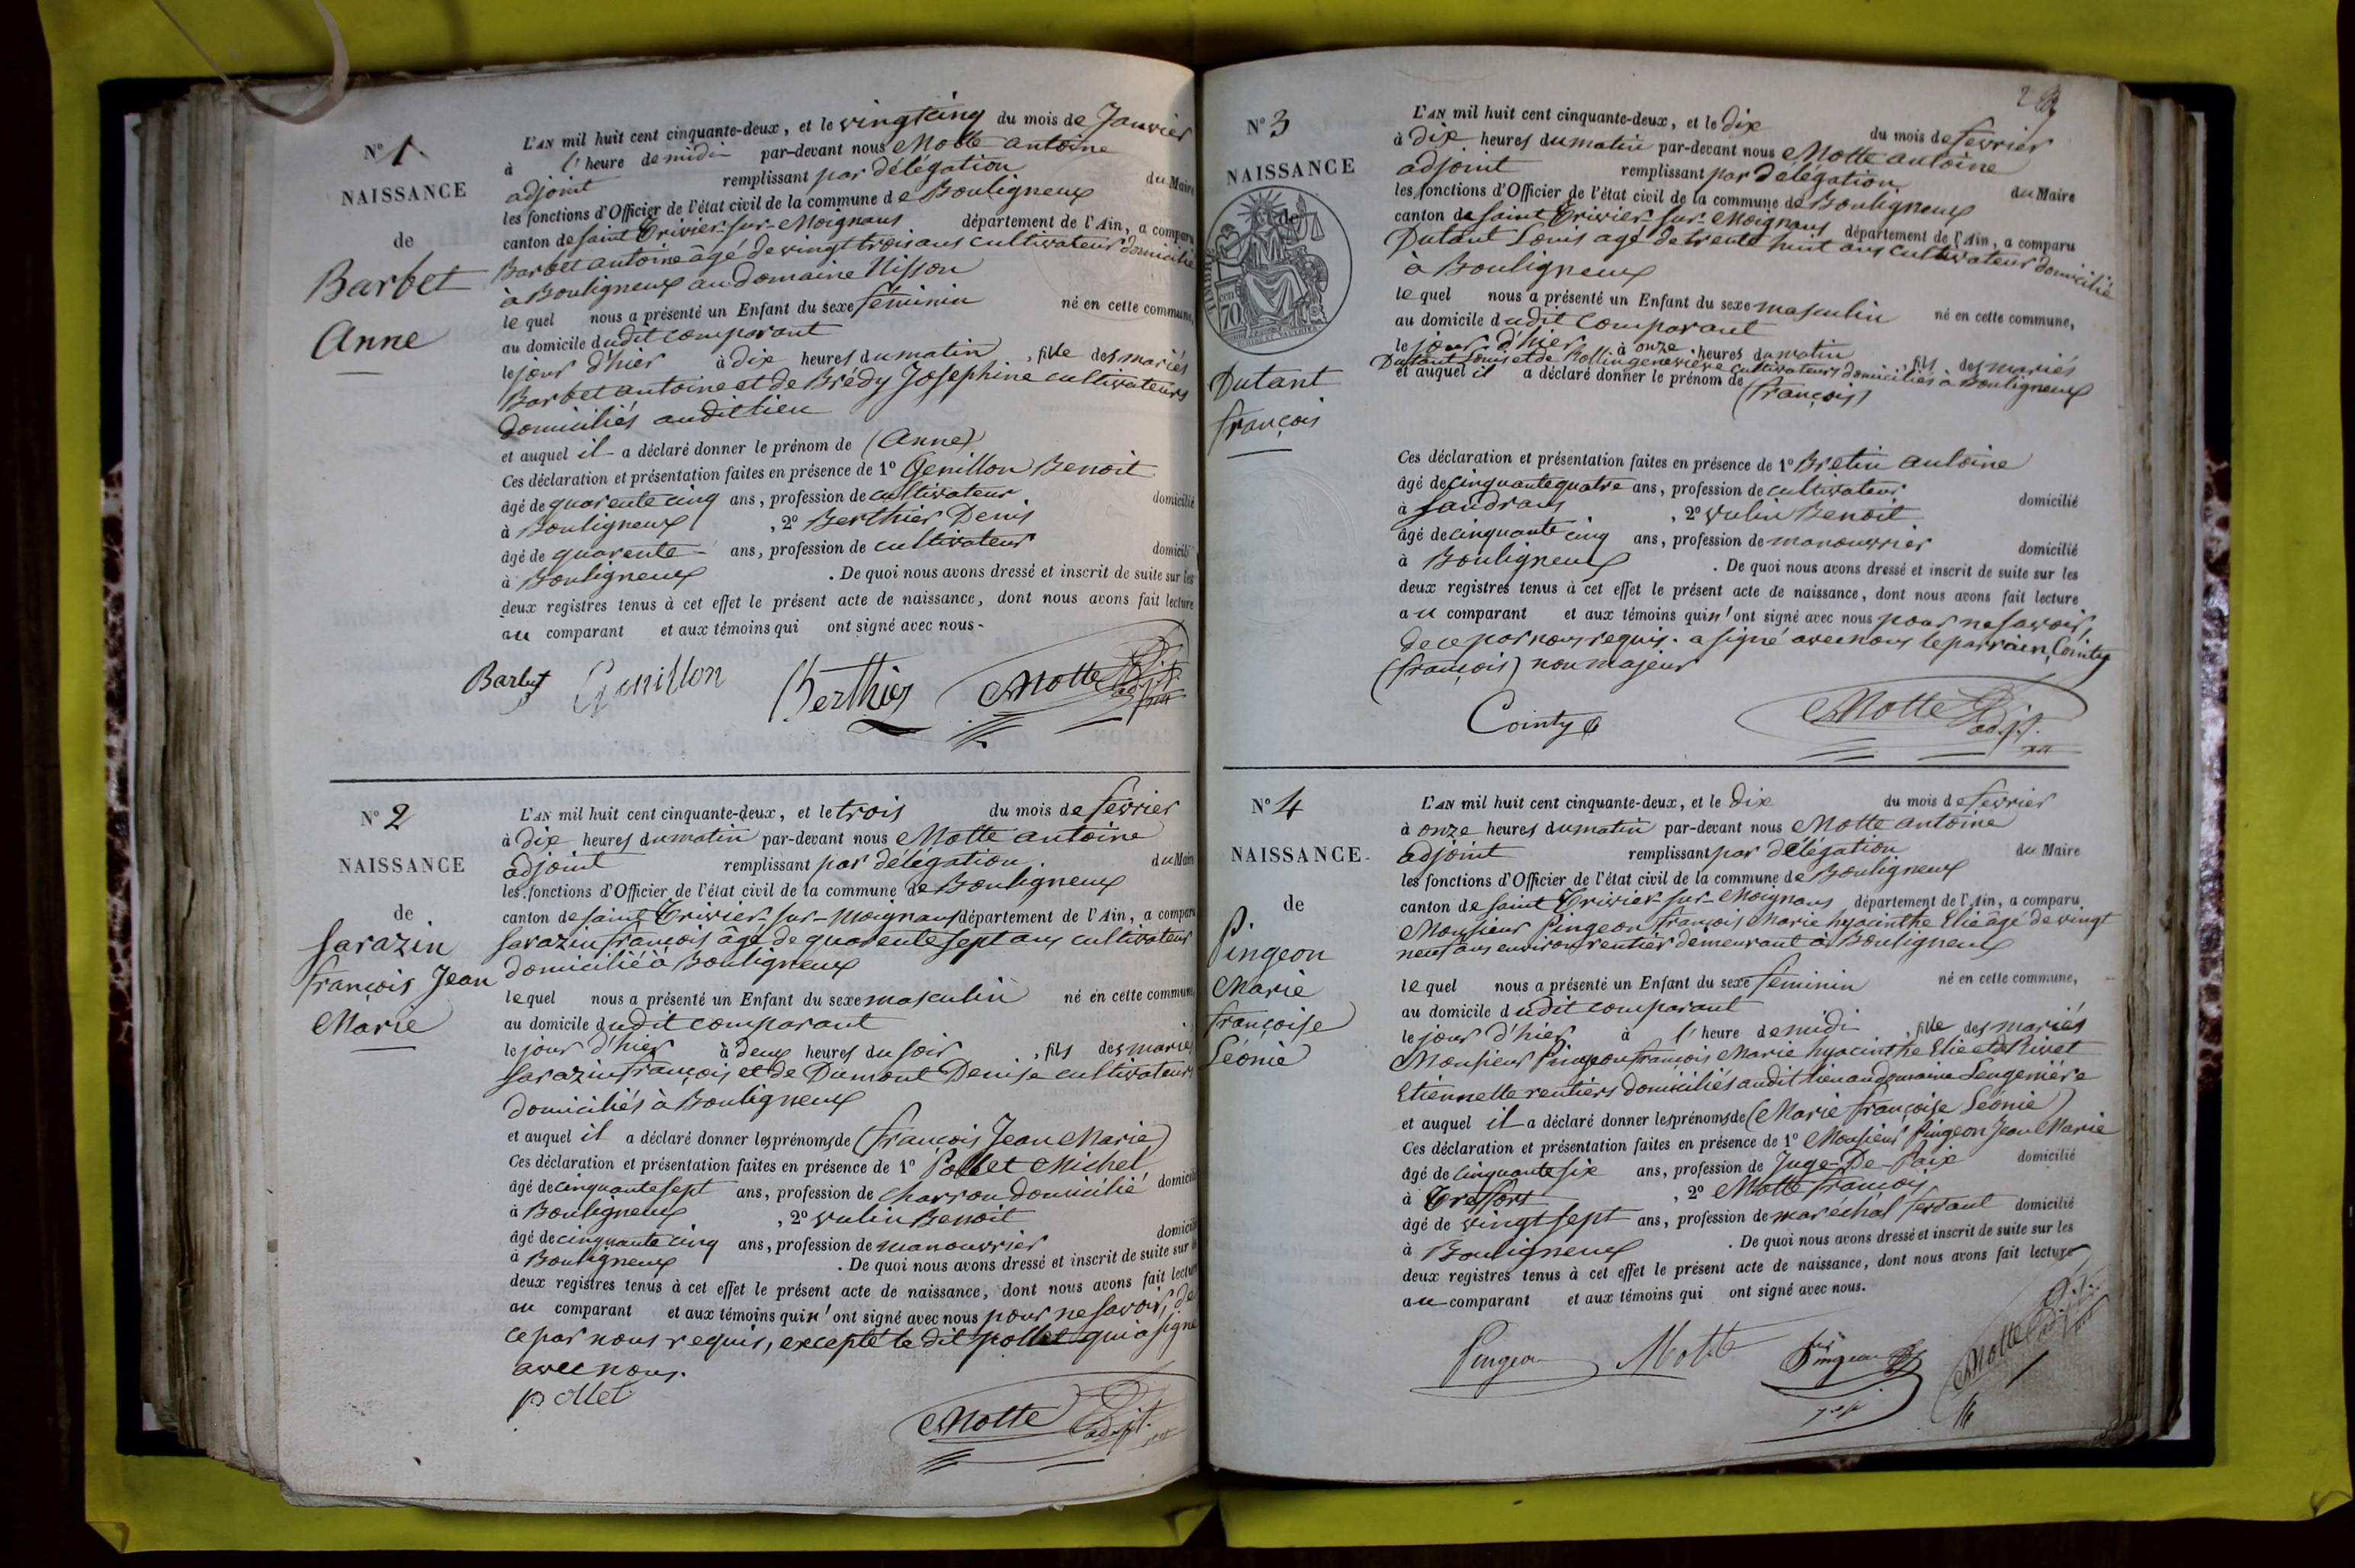 N° 1
NAISSANCE
de
Barbet
Anne
L'AN mil huit cent cinquante-deux, et le vingt cinq du mois de Janvier
à l'heure de midi par-devant nous Motte antoine
adjoint remplissant par délégation du Maire
les fonctions d'Officier de l'état civil de la commune de Bouligneux
canton de saint Trivier-sur-Moignans département de l'Ain, a comparu
Barbet antoine âgé de vingt trois ans cultivateur domicilié
à Bouligneux au domaine Nisson
le quel nous a présenté un Enfant du sexe féminin né en cette commune,
au domicile dudit comparant
le jour d'hier à dix heures du matin, fille des mariés
Barbet antoine et de Brédy Josephine cultivateurs
domiciliés audit lieu
et auquel il a déclaré donner le prénom de (Anne)
Ces déclaration et présentation faites en présence de 1° Genillon Benoit
âgé de quarente cinq ans, profession de cultivateur domicilié
à Bouligneux, 2° Berthier Denis
âgé de quarente ans, profession de cultivateur domicili
à Bouligneux. De quoi nous avons dressé et inscrit de suite sur les
deux registres tenus à cet effet le présent acte de naissance, dont nous avons fait lecture
au comparant et aux témoins qui ont signé avec nous-
Barbet Genillon Berthier Motte adjt
N° 2
NAISSANCE
de
Sarazin
françois Jean
Marie
L'AN mil huit cent cinquante-deux, et le trois du mois de février
à dix heures du matin par-devant nous Motte antoine
adjoint remplissant par délégation. du Maire
les fonctions d'Officier de l'état civil de la commune de Bouligneux
canton de saint Trivier-sur-Moignans département de l'Ain, a comparu
Sarazin françois âgé de quarente sept ans cultivateur
domicilié à Bouligneux
le quel nous a présenté un Enfant du sexe masculin né en cette commune
au domicile dudit comparant
le jour d'hier à deux heures du soir, fils des mariés
Sarazin françois et de Dumont Denise cultivateurs
domiciliés à Bouligneux
et auquel il a déclaré donner les prénoms de (françois Jean Marie)
Ces déclaration et présentation faites en présence de 1° Pollet Michel
âgé de cinquante sept ans, profession de charron domicilié domicilié
à Bouligneux, 2° vulin Benoit
âgé de cinquante cinq ans, profession de manouvrier domicilié
à Bouligneux. De quoi nous avons dressé et inscrit de suite sur les
deux registres tenus à cet effet le présent acte de naissance, dont nous avons fait lecture
au comparant et aux témoins qui n'ont signé avec nous pour ne savoir, de
ce par nous requis, excepté le dit pollet qui a signé
avec nous.
pollet
Motte adjt.
N° 3
NAISSANCE
de
TIMBRE
70
Dutant
françois
L'AN mil huit cent cinquante-deux, et le dix du mois de février
à dix heures du matin par-devant nous Motte antoine
adjoint remplissant par délégation du Maire
les fonctions d'Officier de l'état civil de la commune de Bouligneux
canton de saint Trivier-sur-Moignans département de l'Ain, a comparu
Dutant Louis âgé de trente huit ans cultivateur domicilié
à Bouligneux
le quel nous a présenté un Enfant du sexe masculin né en cette commune,
au domicile dudit comparant
le jour d'hier à onze heures du matin, fils des mariés
Dutant Louis et de Rollin genevieve cultivateurs domiciliés à Bouligneux
et auquel il a déclaré donner le prénom de (françois)
Ces déclaration et présentation faites en présence de 1° Bretin antoine
âgé de cinquante quatre ans, profession de cultivateur domicilié
à Sandrans, 2° vulin Benoit
âgé de cinquante cinq ans, profession de manouvrier domicilié
à Bouligneux. De quoi nous avons dressé et inscrit de suite sur les
deux registres tenus à cet effet le présent acte de naissance, dont nous avons fait lecture
au comparant et aux témoins qui n'ont signé avec nous pour ne savoir,
de ce par nous requis. a signé avec nous le parrain, Cointy
(françois) non majeur
Cointy Motte adjt.
N° 4
NAISSANCE
de
Pingeon
Marie
françoise
Léonie
L'AN mil huit cent cinquante-deux, et le dix du mois de février
à onze heures du matin par-devant nous Motte antoine
adjoint remplissant par délégation du Maire
les fonctions d'Officier de l'état civil de la commune de Bouligneux
canton de saint Trivier-sur-Moignans département de l'Ain, a comparu
Monsieur Pingeon françois Marie hyacinthe Elie âgé de vingt
neuf ans environ rentier demeurant à Bouligneux
le quel nous a présenté un Enfant du sexe féminin né en cette commune,
au domicile dudit comparant
le jour d'hier à l'heure de midi, fille des mariés
Monsieur Pingeon françois Marie hyacinthe Elie et de Rivet
Etiennette rentiers domiciliés audit lieu au domaine Lengenière
et auquel il a déclaré donner les prénoms de (Marie françoise Léonie)
Ces déclaration et présentation faites en présence de 1° Monsieur Pingeon Jean Marie
âgé de cinquante six ans, profession de Juge-De-Paix domicilié
à Treffort, 2° Motte françois
âgé de vingt sept ans, profession de maréchal ferrant domicilié
à Bouligneux. De quoi nous avons dressé et inscrit de suite sur les
deux registres tenus à cet effet le présent acte de naissance, dont nous avons fait lecture
au comparant et aux témoins qui ont signé avec nous.
Pingeon Motte Pingeon Motte adjt